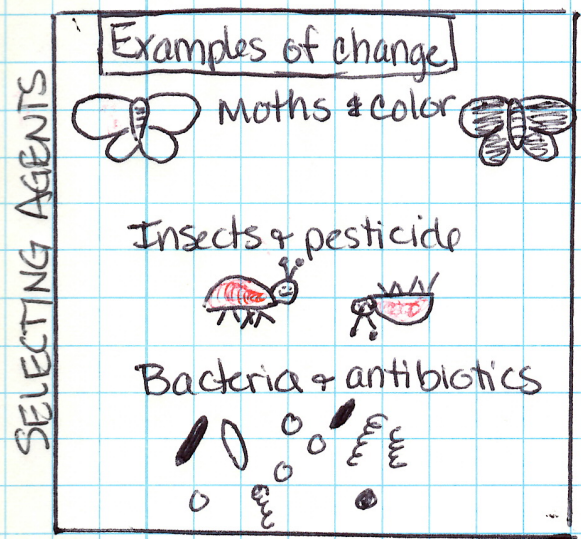 SELECTING AGENTS
Examples of change
Moths & color
Insects & pesticide
Bacteria & antibiotics